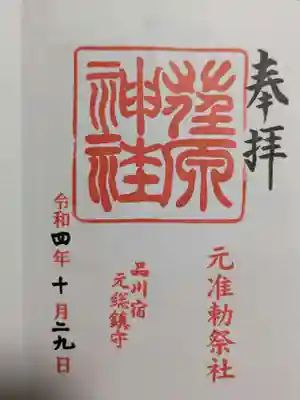 奉拝
荏原
神社
元准勅祭社
品川宿
元総鎮守
令和四年十月二九日